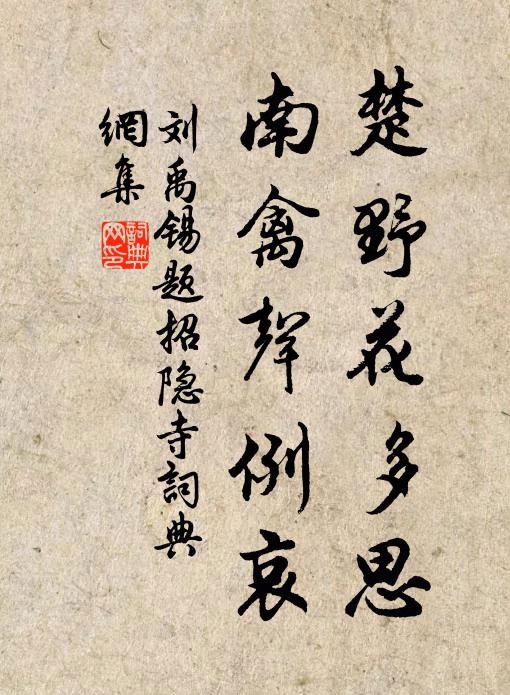 楚野花多思
南禽聲例哀
刘禹锡题招隐寺詞典
網集
詞典
网印